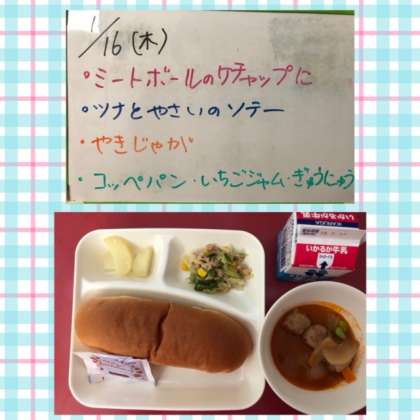 1/16(木)
・ミートボールのケチャップに
・ツナとやさいのソテー
・やきじゃが
・コッペパン・いちごジャム・ぎゅうにゅう
いかるが牛乳
いかるが牛乳